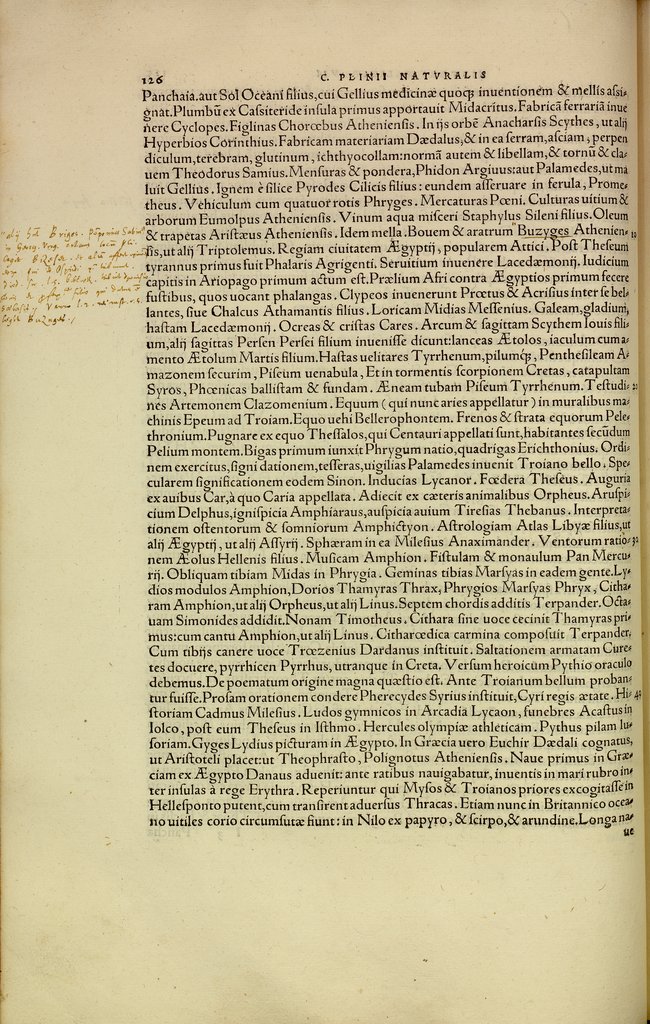 126
C. PLINII NATVRALIS
Panchaia.aut Sol Oceani filius,cui Gellius medicinæ quoqȝ inuentionem & mellis aſsi-
gnat.Plumbũ ex Caſsiteride inſula primus apportauit Midacritus. Fabricã ferrariã inue
nere Cyclopes. Figlinas Chorœbus Athenienſis. In ijs orbẽ Anacharſis Scythes, ut alij
Hyperbios Corinthius. Fabricam materiariam Dædalus,& in ea ſerram,aſciam, perpen
diculum,terebram, glutinum, ichthyocollam:normã autem & libellam,& tornũ & cla-
uem Theodorus Samius. Menſuras & pondera,Phidon Argiuus:aut Palamedes,ut ma
luit Gellius. Ignem è ſilice Pyrodes Cilicis filius: eundem aſſeruare in ferula, Prome-
theus. Vehiculum cum quatuor rotis Phryges. Mercaturas Pœni. Culturas uitium &
arborum Eumolpus Athenienſis. Vinum aqua miſceri Staphylus Sileni filius.Oleum
& trapetas Ariſtæus Athenienſis. Idem mella.Bouem & aratrum Buzyges Athenien-
ſis,ut alij Triptolemus. Regiam ciuitatem Ægyptij, popularem Attici. Poſt Theſeum
tyrannus primus fuit Phalaris Agrigenti. Seruitium inuenere Lacedæmonij. Iudicium
capitis in Ariopago primum actum eſt.Prælium Afri contra Ægyptios primum fecere
fuſtibus, quos uocant phalangas. Clypeos inuenerunt Prœtus & Acriſius inter ſe bel-
lantes, ſiue Chalcus Athamantis filius. Loricam Midias Meſſenius. Galeam,gladium,
haſtam Lacedæmonij. Ocreas & criſtas Cares. Arcum & ſagittam Scythem Iouis fili-
um,alij ſagittas Perſen Perſei filium inueniſſe dicunt:lanceas Ætolos, iaculum cum a-
mento Ætolum Martis filium.Haſtas uelitares Tyrrhenum,pilumqȝ, Pentheſileam A-
mazonem ſecurim, Piſeum uenabula, Et in tormentis ſcorpionem Cretas, catapultam
Syros, Phœnicas balliſtam & fundam. Æneam tubam Piſeum Tyrrhenum.Teſtudi-
nes Artemonem Clazomenium. Equum (qui nunc aries appellatur) in muralibus ma-
chinis Epeum ad Troiam.Equo uehi Bellerophontem. Frenos & ſtrata equorum Pele-
thronium.Pugnare ex equo Theſſalos,qui Centauri appellati ſunt,habitantes ſecũdum
Pelium montem.Bigas primum iunxit Phrygum natio,quadrigas Erichthonius. Ordi-
nem exercitus,ſigni dationem,teſſeras,uigilias Palamedes inuenit Troiano bello. Spe-
cularem ſignificationem eodem Sinon. Inducias Lycanor. Fœdera Theſeus. Auguria
ex auibus Car,à quo Caria appellata. Adiecit ex cæteris animalibus Orpheus.Aruſpi-
cium Delphus,igniſpicia Amphiaraus,auſpicia auium Tireſias Thebanus. Interpreta-
tionem oſtentorum & ſomniorum Amphictyon. Aſtrologiam Atlas Libyæ filius,ut
alij Ægyptij, ut alij Aſſyrij. Sphæram in ea Mileſius Anaximander. Ventorum ratio-
nem Æolus Hellenis filius. Muſicam Amphion. Fiſtulam & monaulum Pan Mercu-
rij. Obliquam tibiam Midas in Phrygia. Geminas tibias Marſyas in eadem gente.Ly-
dios modulos Amphion,Dorios Thamyras Thrax, Phrygios Marſyas Phryx, Citha-
ram Amphion,ut alij Orpheus,ut alij Linus.Septem chordis additis Terpander. Octa-
uam Simonides addidit.Nonam Timotheus. Cithara ſine uoce cecinit Thamyras pri-
mus:cum cantu Amphion,ut alij Linus. Citharœdica carmina compoſuit Terpander.
Cum tibijs canere uoce Trœzenius Dardanus inſtituit. Saltationem armatam Cure-
tes docuere, pyrrhicen Pyrrhus, utranque in Creta. Verſum heroicum Pythio oraculo
debemus.De poematum origine magna quæſtio eſt. Ante Troianum bellum proban-
tur fuiſſe.Proſam orationem condere Pherecydes Syrius inſtituit,Cyri regis ætate. Hi-
ſtoriam Cadmus Mileſius. Ludos gymnicos in Arcadia Lycaon, funebres Acaſtus in
Iolco, poſt eum Theſeus in Iſthmo. Hercules olympiæ athleticam. Pythus pilam lu-
ſoriam.Gyges Lydius picturam in Ægypto. In Græcia uero Euchir Dædali cognatus,
ut Ariſtoteli placet:ut Theophraſto, Polignotus Athenienſis. Naue primus in Græ-
ciam ex Ægypto Danaus aduenit: ante ratibus nauigabatur, inuentis in mari rubro in-
ter inſulas à rege Erythra. Reperiuntur qui Myſos & Troianos priores excogitaſſe in
Helleſponto putent,cum tranſirent aduerſus Thracas. Etiam nunc in Britannico ocea-
no uitiles corio circumſutæ fiunt: in Nilo ex papyro, & ſcirpo,& arundine.Longa na-
ue